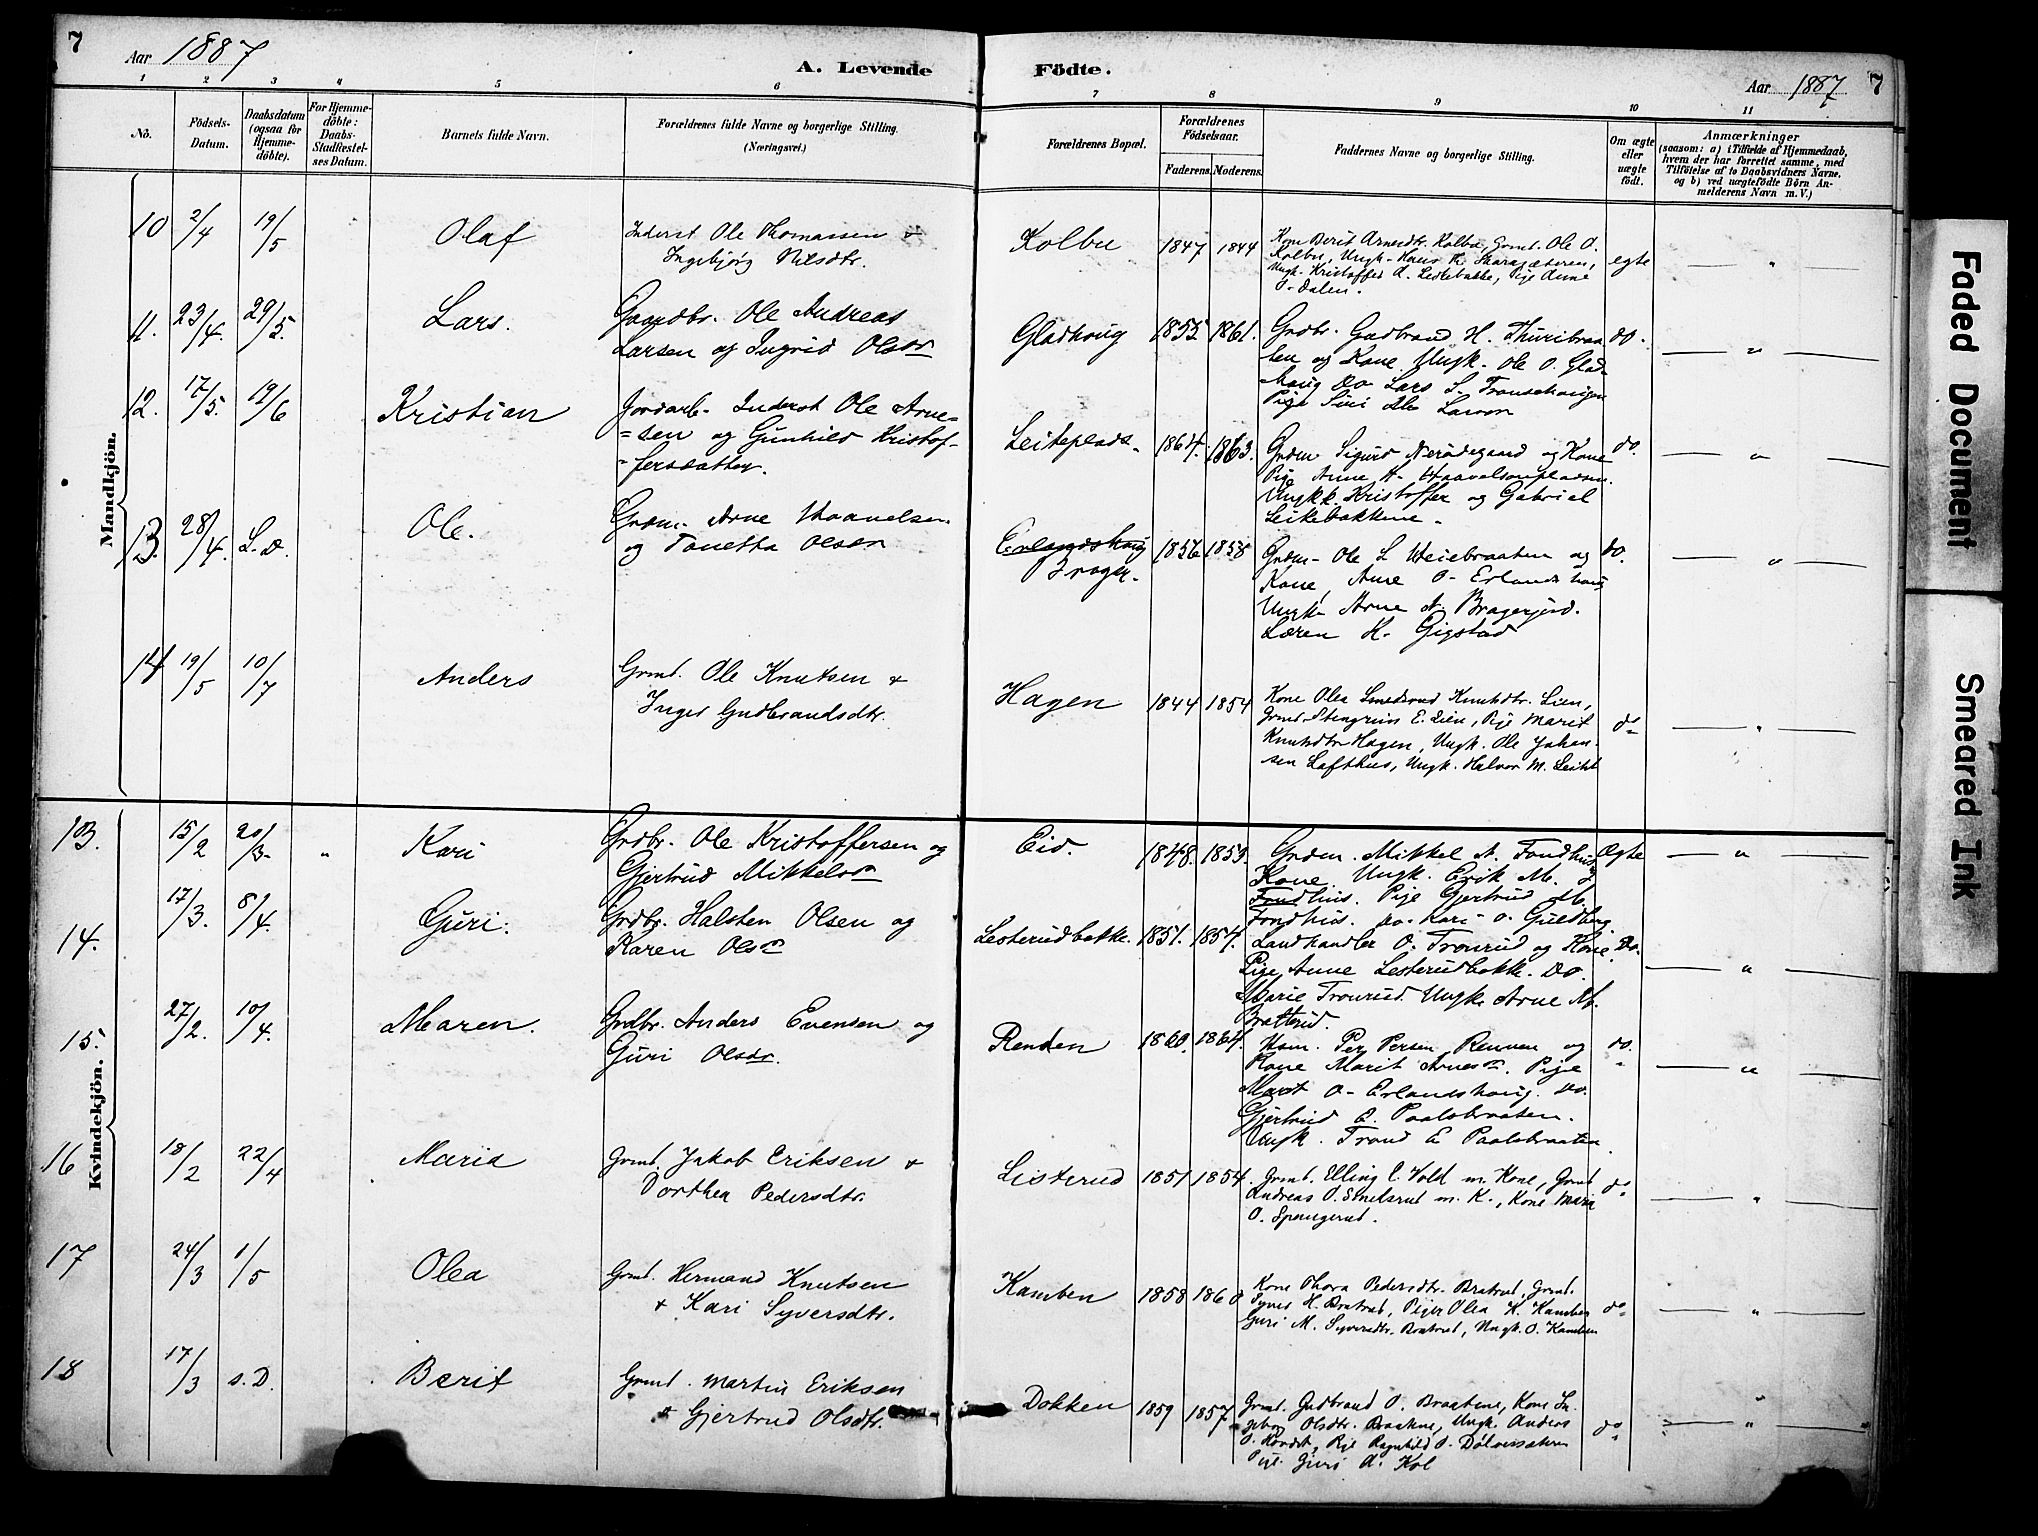 7 Aar 1887 A. Levende Födte. Aar 1887 7
1 2 3 4 5 6 7 8 9 10 11
No. Födsels-Datum. Daabsdatum (ogsaa for Hjemmedöbte). For Hjemmedöbte: Daabs-Stadfæstelses Datum. Barnets fulde Navn. Forældrenes fulde Navne og borgerlige Stilling. (Næringsvei.) Forældrenes Bopæl. Forældrenes Födselsaar. Faderens. Moderens. Faddernes Navne og borgerlige Stilling. Om ægte eller uægte födt. Anmærkninger (saasom: a) i Tilfælde af Hjemmedaab, hvem der har forrettet samme, med Tilföielse af to Daabsvidners Navne. og b) ved uægtefödte Börn Anmelderens Navn m. V.)
Mandkjön.
10 2/4 19/5 Olaf Inderst Ole Thomassen +
Ingebjörg Nilsdtr. Kolbu 1847 1844 Kone Berit Arnesdtr. Kolbu, Grmd. Ole O.
Kolbu, Ungk. Hans
Ungk. Kristoffer A. Leikebakke, Pige Anne
O. Dalen. egte "
11. 23/4. 29/5. Lars. Gaardbr. Ole Andreas
Larsen og Ingrid Olsdr Gladhoug 1855 1861. Grdbr. Gudbrand H. Thuribraa-
ten og Kone. Ungk. Ole O. Glad-
houg Do Lars L. Transchougen
Pige Siri do.
12. 17/5. 19/6 Kristian Jordarb. Inderst Ole Arne-
=sen og Gunhild Kristof-
=fersdatter. Leiteplads. 1864. 1863. Grdm Sigurd Nerødegaard og Kone
Pige Anne
Ungkk Kristoffer og Gabriel
Leikebakkene. do. "
13. 28/4. S. D. Ole. Grdm. Arne Haavelsen
og Tonetta Olsdr Erlandshoug
Brager. 1856 1858 Grdm. Ole L Heiebraaten og
Kone, Anne O. Erlandshoug
Ungk. Arne A. Bragerjord.
Søren H. Gigstad do. "
14 19/5 10/7 Anders Grmd. Ole Knutsen +
Inger Gudbrandsdtr. Hagen 1844 1854 Kone Olea Smedsrud Knutsdtr. Lien,
Grmd. Stengrim E. Lien, Pige Marit
Knutsdtr Hagen, Ungk. Ole Johan-
sen Lofthus, Ungk. Halvor M. do "
Kvindekjön.
13. 15/2 20/3. " Kari Grdbr. Ole Kristoffersen og
Gjertrud Mikkelsdr Eid. 1848. 1853. Grdm. Mikkel A. Fondhus
Kone. Ungk. Erik M.
Fondhus. Pige Gjertrud M.
Fondhus. Do. Kari O. Guldberg Ægte "
14. 17/3. 8/4. Guri. Grdbr. Halsten Olsen og
Karen Olsdr Lesterudbakke. 1851. 1854. Landhandler O. Tronrud og Kone.
Pige Anne Lesterudbakke. Do.
Marie Tronrud. Ungk. Arne M.
Bratterud. Do. "
15. 27/2. 10/4. Maren. Grdbr. Anders Evensen og
Guri Olsdr. Renden 1860. 1864. Hsm. Per Persen Rennen og
Kone Marit Arnesdr. Pige
Marit O. Erlandshoug. Do.
Gjertrud E. Paalsbraaten.
Ungk. Trond E Paalsbraaten do. "
16 18/2 22/4 Maria Grmd. Jakob Eriksen +
Dorthea Pedersdtr. Listerud 1851 1854. Grmd. Elling E. Vold m. Kone, Grmd
Andreas O. m. K., Kone Maria
O. Spangerud. do "
17 24/3 1/5 Olea Grmd. Hermand Knutsen
+ Kari Syversdtr. Kamben 1858 1860 Kone Thora Pedersdtr. Bratrud, Grmd.
Syver H. Bratrud, Piger Olea K. Kamben
Guri M. Syversdtr. Bratrud, Ungk. O. Kamben do "
18 17/3 s. D. Berit Grmd. Martin Eriksen
+ Gjertrud Olsdtr. Dokken 1859 1857 Grmd. Gudbrand O. Braatene, Kone In-
geborg Olsdtr. Braatene, Ungk. Anders
O. Pige Ragnhild O.
Pige Guri A. Kol do "
Faded Document
Smeared Ink